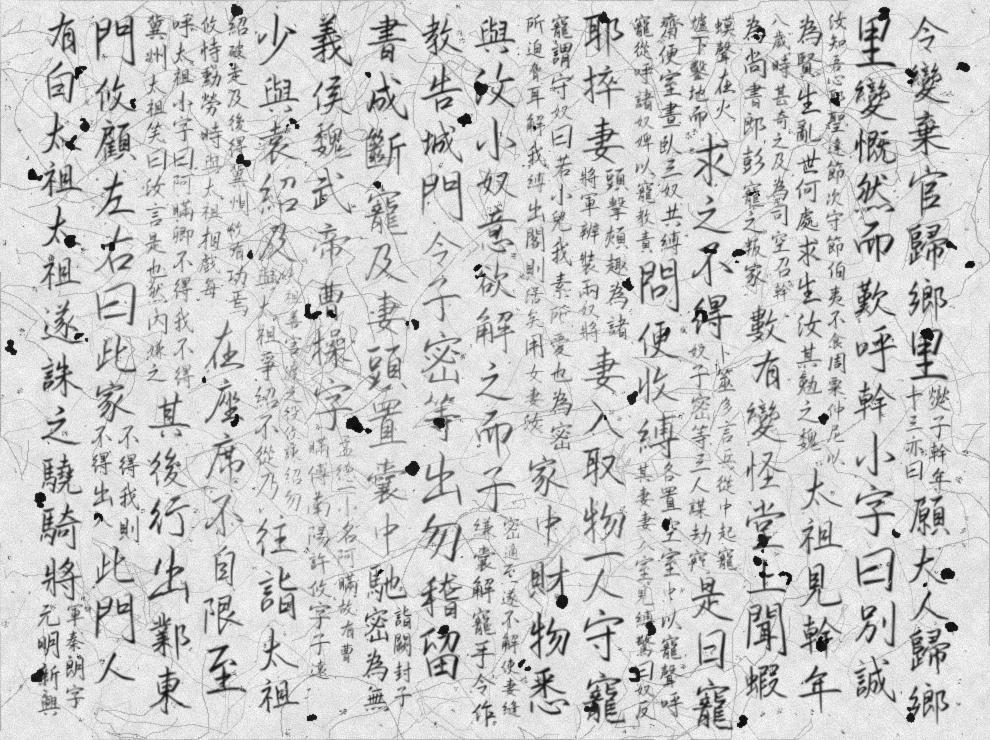 今變棄官歸鄉里
變子幹年
十三亦曰
願大人歸鄉
里變慨然而歎呼幹小字曰別誠
汝知吾心耶聖達節次守節伯夷不食周粟仲尼以
為賢生亂世何處求生汝其勉之魏
太祖見幹年
八歲時甚奇之及為司空召幹
為尚書郎彭寵之叛家
數有變怪堂上聞蝦
蟆聲在火
爐下鑿地而
求之不得
卜筮多言兵從中起寵
奴子密等三人謀劫寵
是日寵
齋便室晝臥三奴共縛
寵從呼諸奴婢以寵教責
問便收縛
各置空室中以寵聲呼
其妻妻入室見縛驚曰奴反
耶捽妻
頭擊頰趣為諸
將軍辨裝兩奴將
妻入取物一人守寵
寵謂守奴曰若小兒我素所愛也為密
所迫脅耳解我縛出閣則活矣用女妻汝
家中財物悉
與汝小奴意欲解之而子
密適至遂不解使妻縫
縑囊解寵手令作
教告城門今子密等出勿稽留
書成斷寵及妻頭置囊中馳
詣闕封子
密為無
義侯魏武帝曹操字
孟德一小名阿瞞故有曹
瞞傳南陽許攸字子遠
少與袁紹及
祖善官渡之役諫紹勿
與太祖爭紹不從乃
往詣太祖
紹破走及後得冀州攸有功焉
攸恃勳勞時與太祖相戲每
在座席不自限至
呼太祖小字曰阿瞞卿不得我不得
冀州太祖笑曰汝言是也然內嫌之
其後行出鄴東
門攸顧左右曰此家
不得我則
不得出入
此門人
有白太祖太祖遂誅之驍騎將
軍秦朗字
元明新興